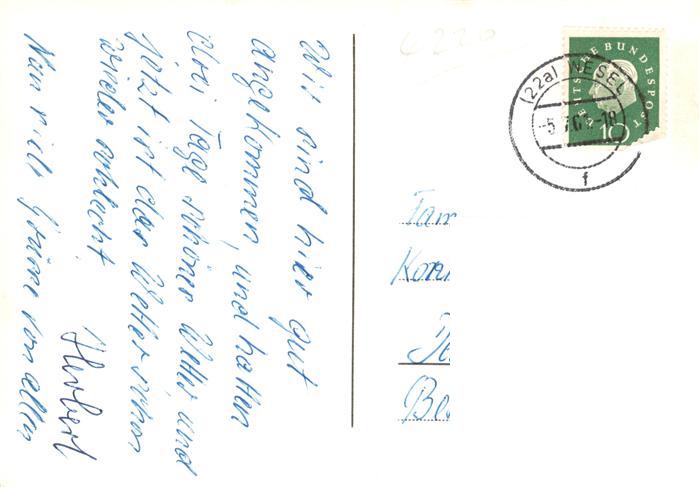 Wir sind hier gut
angekommen, und hatten
drei Tage schönes Wetter, und
jetzt ist das Wetter schon
wieder schlecht
Nun viele Grüsse von allen
Herbert
DEUTSCHE BUNDESPOST
10
(22a) WESEL
f
Fam
Be